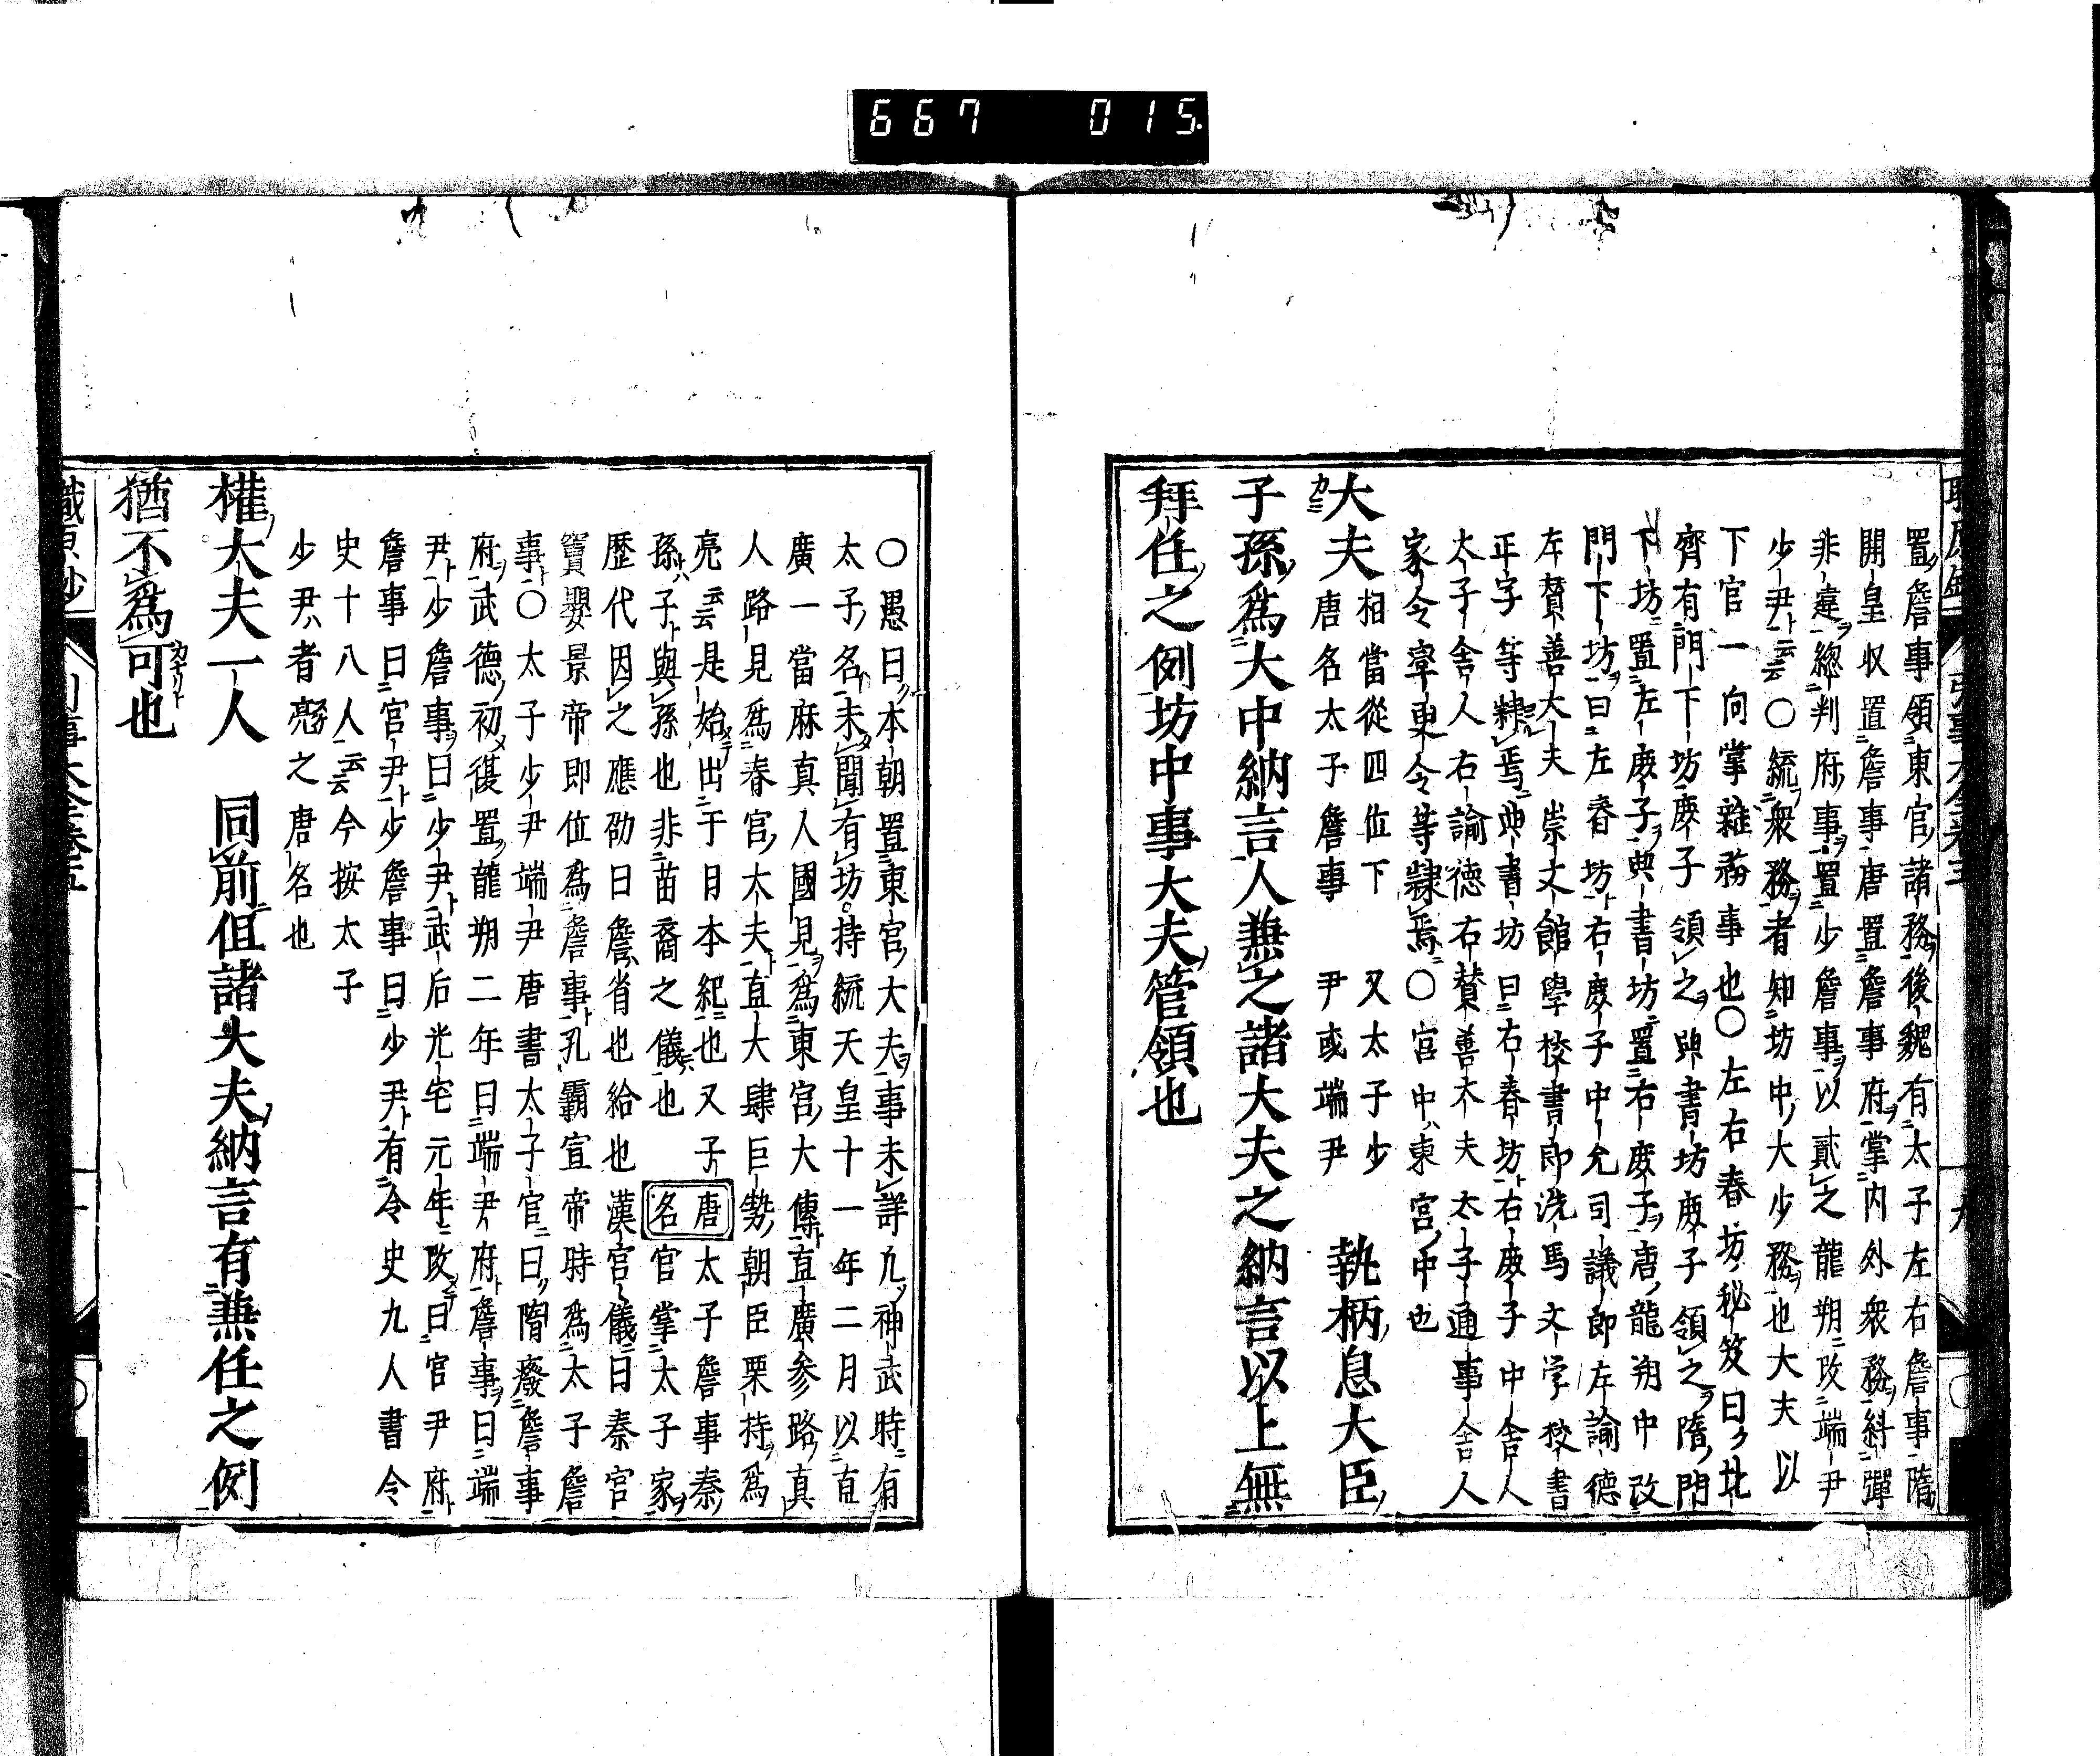 667 015
置詹事領東官諸務後魏有太子左右詹事隋
開皇収置詹事唐置詹事府掌内外衆務糾彈
非違總判府事置少詹事以貳之龍朔改端尹
少尹云云〇統衆務者知坊中大少務也大夫以
下官一向掌雜務事也〇左右春坊秘笈曰北
齊有門下坊庶子領之與書坊庶子領之隋門
下坊置左庶子典書坊置右庶子唐龍朔中改
門下坊曰左春坊右庶子中允司議郎左諭德
左賛善大夫崇文館學校書郎洗馬文学校書
正字等隷焉典書坊曰右春坊右庶子中舎人
太子舎人右諭德右賛善大夫太子通事舎人
家令寧更令等隷焉〇宮中東宮中也
大夫 相當從四位下 又太子少
唐名太子詹事 尹或端尹
執柄息大臣
子孫爲大中納言人兼之諸大夫之納言以上無
拜任之例坊中事大夫管領也
〇愚曰本朝置東宮大夫事未詳九神武時有
太子名未聞有坊持統天皇十一年二月以直
廣一當麻真人國見爲東宮大傅直廣參路真
人路見爲春宮大夫直大肆巨勢朝臣栗持爲
亮云云是始出于日本紀也又子 唐 太子詹事秦
孫子與孫也非苗裔之儀也 名 官掌太子家
歴代因之應劭曰詹省也給也漢官儀曰秦官
竇嬰景帝即位爲詹事孔霸宣帝時爲太子詹
事〇太子少尹端尹唐書太子官曰隋廢詹事
府武德初復置龍朔二年曰端尹府詹事曰端
尹少詹事曰少尹武后光宅元年改曰官尹府
詹事曰官尹少詹事曰少尹有令史九人書令
史十八人云云今按太子
少尹者亮之唐名也
權大夫一人 同前但諸大夫納言有兼任之例
猶不爲可也